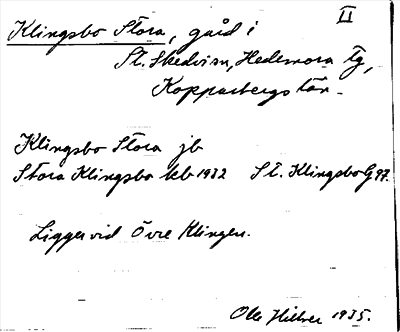 II
Klingsbo Stora, gård i
St. Skedvi sn, Hedemora tg,
Kopparbergs län.
Klingsbo Stora jb
Stora Klingsbo kb 1932 St. Klingsbo G 97.
Ligger vid Övre Klingen.
1935.